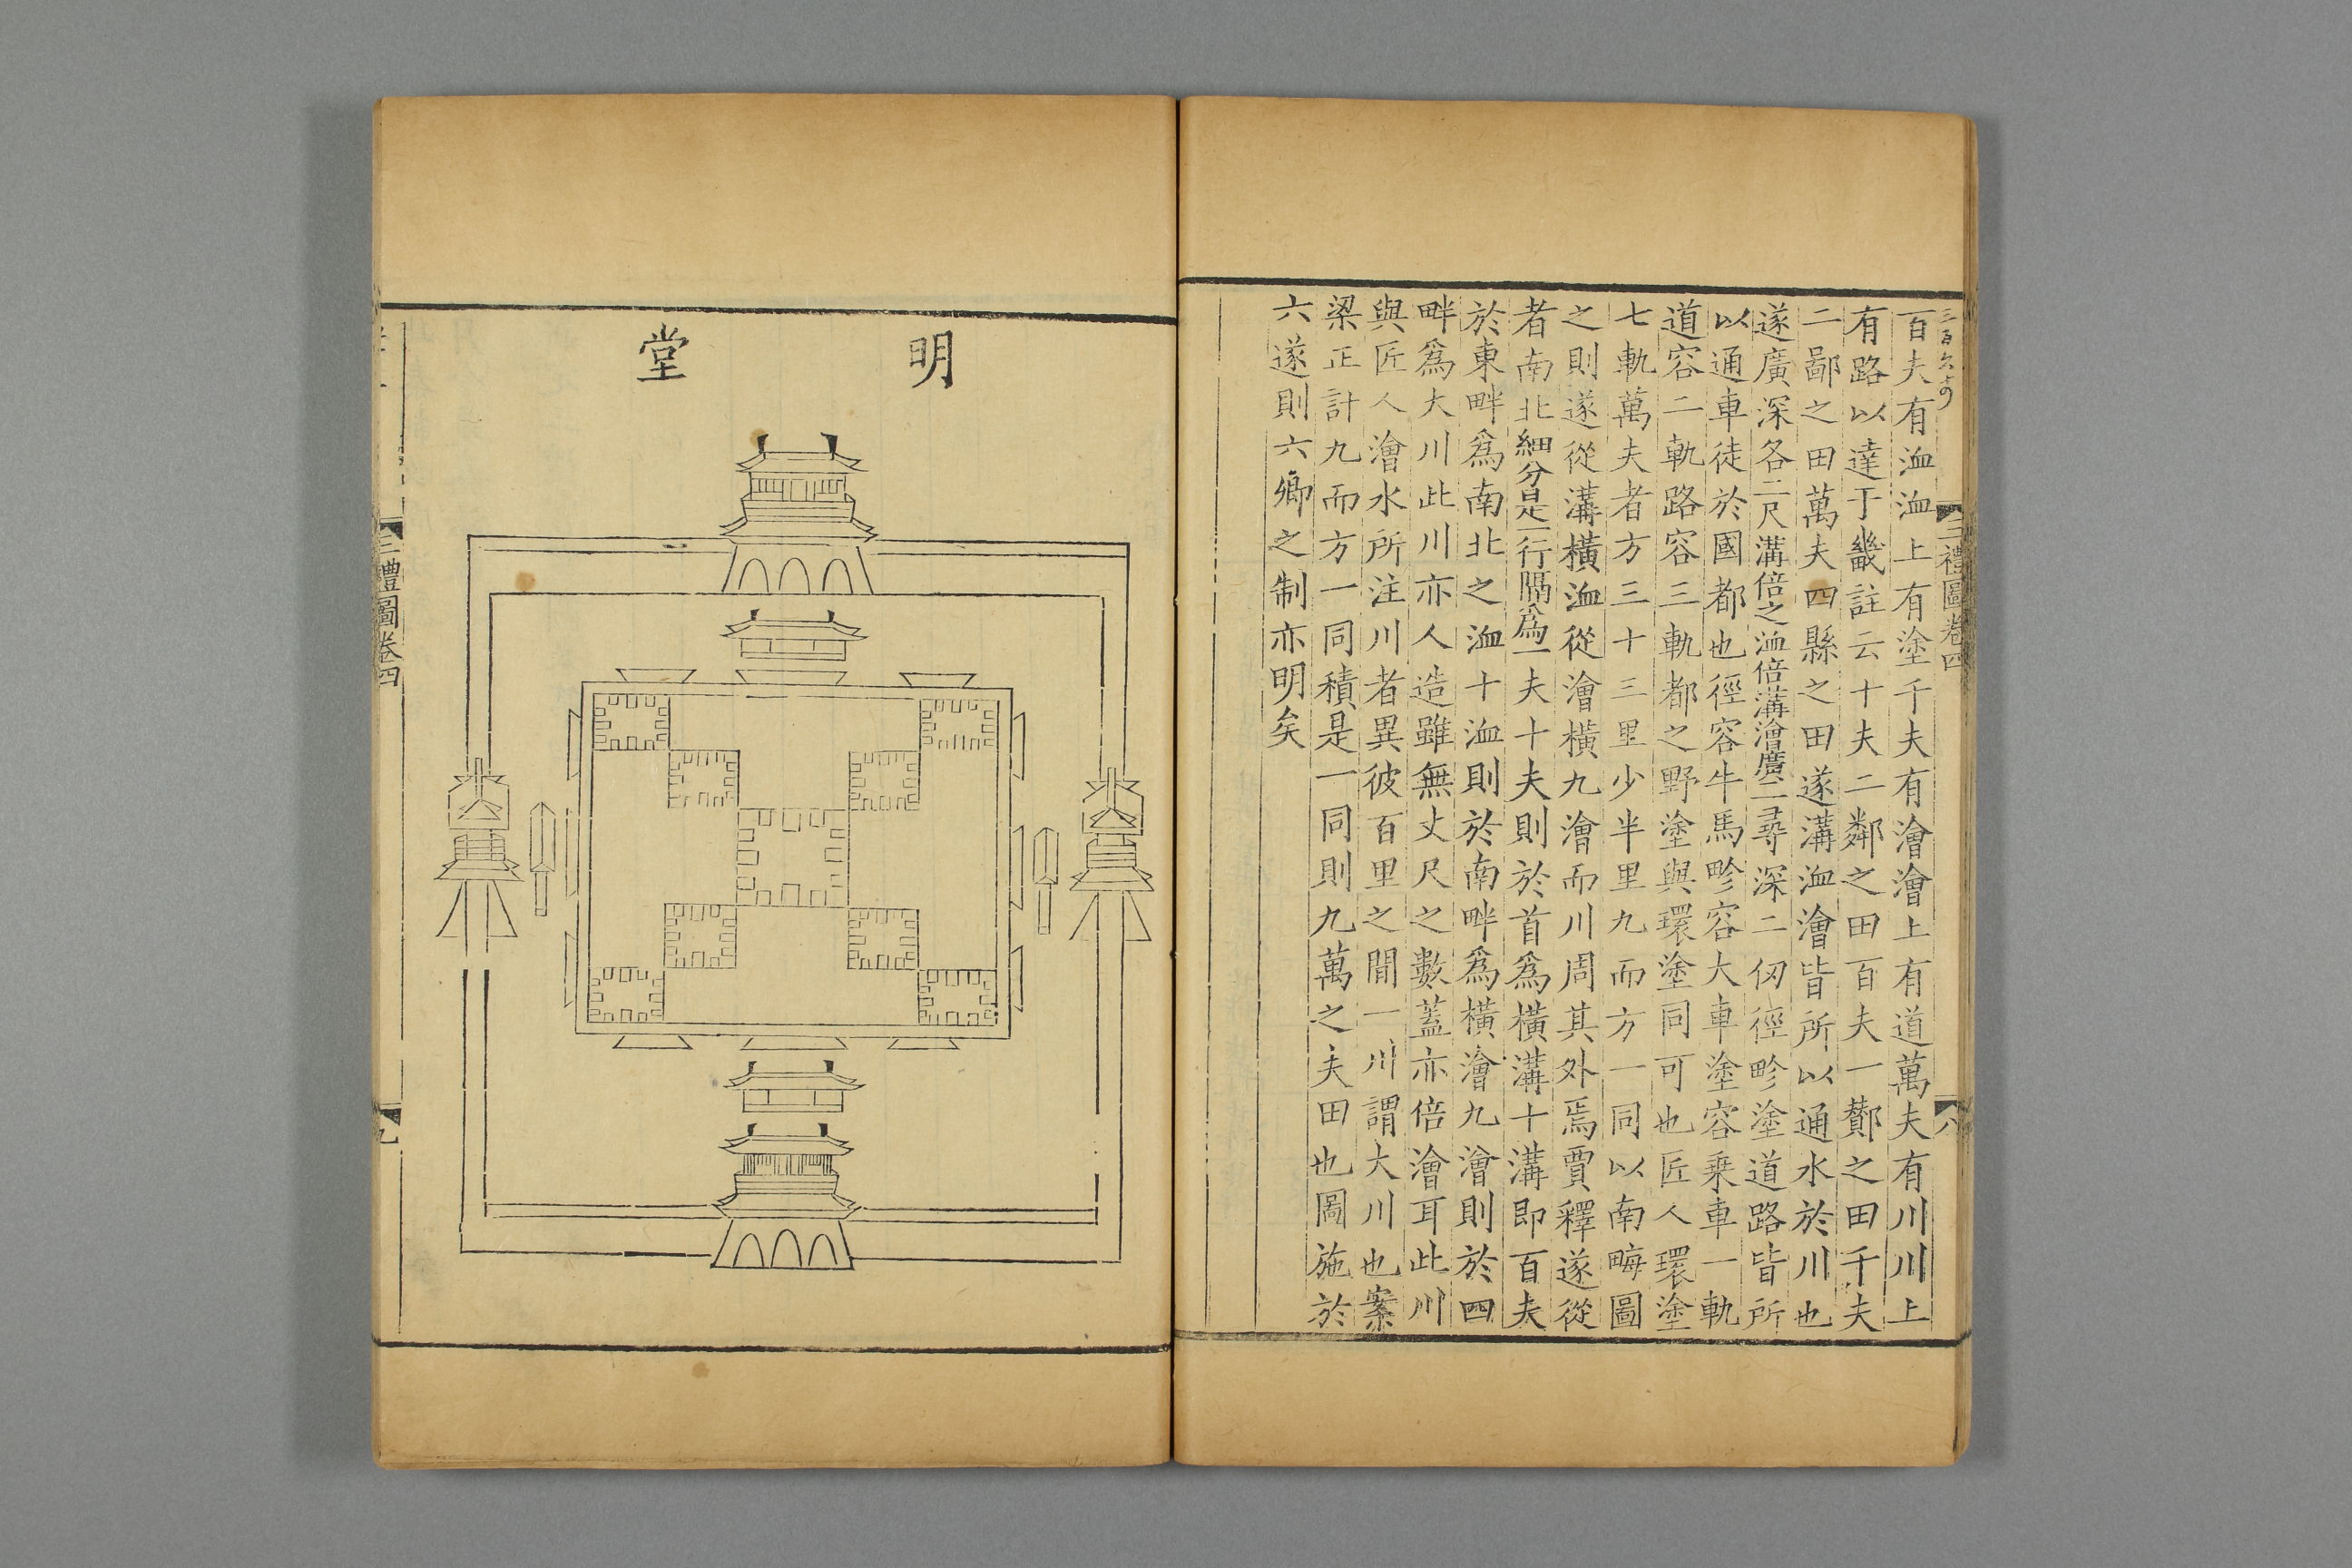 三禮圖卷四
八
百夫有洫洫上有塗千夫有澮澮上有道萬夫有川川上
有路以達于畿註云十夫二鄰之田百夫一酇之田千夫
二鄙之田萬夫四縣之田遂溝洫澮皆所以通水於川也
遂廣深各二尺溝倍之洫倍溝澮廣二尋深二仞徑畛塗道路皆所
以通車徒於國都也徑容牛馬畛容大車塗容乗車一軌
道容二軌路容三軌都之野塗與環塗同可也匠人環塗
七軌萬夫者方三十三里少半里九而方一同以南畮圖
之則遂從溝橫洫從澮橫九澮而川周其外焉賈釋遂從
者南北細分是一行隔爲一夫十夫則於首爲橫溝十溝即百夫
於東畔爲南北之洫十洫則於南畔爲橫澮九澮則於四
畔爲大川此川亦人造雖無丈尺之數蓋亦倍澮耳此川
與匠人澮水所注川者異彼百里之間一川謂大川也案
梁正計九而方一同積是一同則九萬之夫田也圖施於
六遂則六鄉之制亦明矣
明堂
三禮圖卷四
九